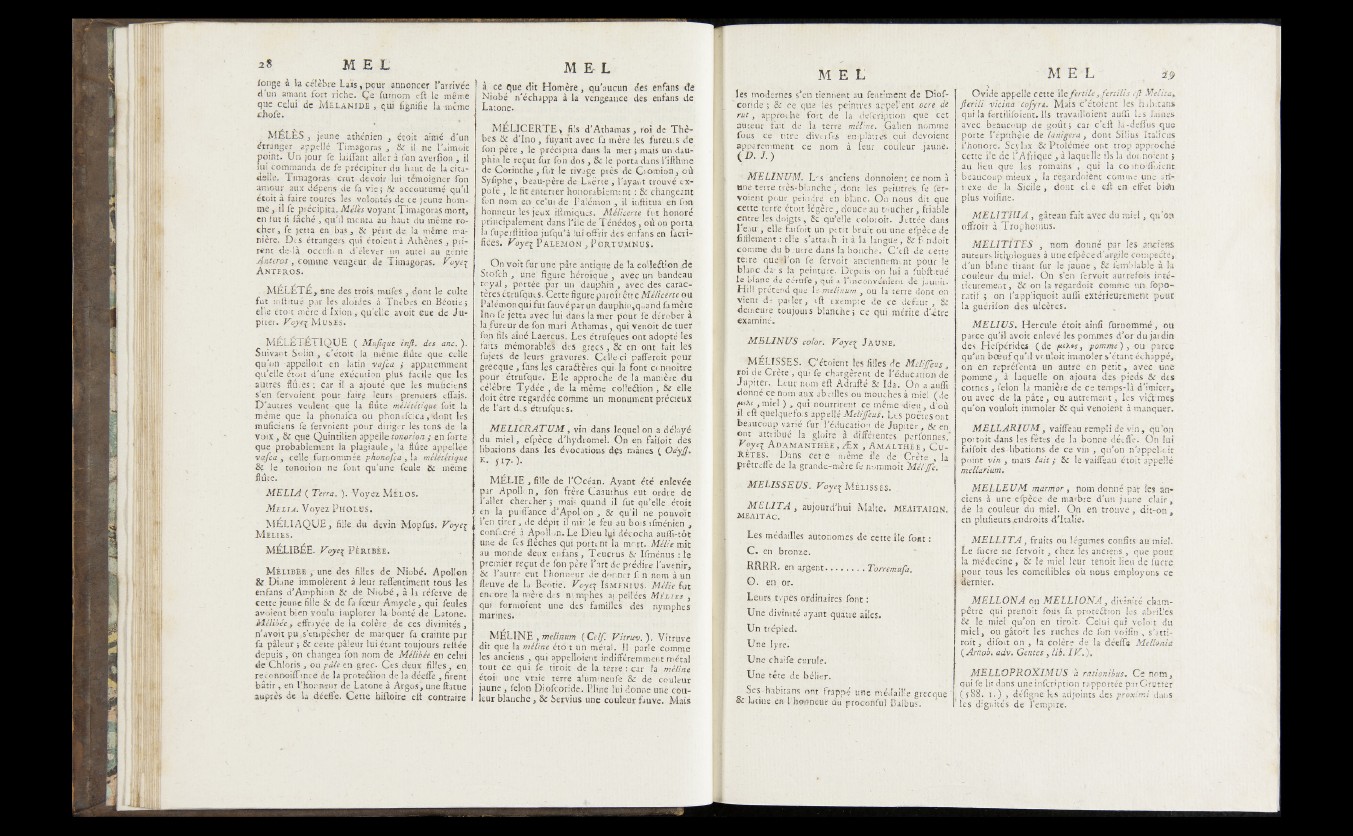 28 M E L
songe à la célèbre Laïs, pour annoncer l'arrivée
d'un amant fort riche. Ce surnom est le même
que celui de MELANIDE, qui signifie la même
chose.
MÉLÈS, jeune athénien, étoit aimé d'un
étranger appellé Timagoras, & il ne l'aimoit
point. Un jour se laissant aller à son aversion, il
lui commanda de se précipiter du haut de la cita-
delle. Timagoras crut devoir lui témoigner son
amour aux dépens de sa vie; & accoutumé qu'il
étoit à faire toutes les volontés de ce jeune hom-
me, il se précipita. Mélès voyant Timagoras mort,
en fut si fâché, qu'il monta au haut du même ro-
cher, se jetta en bas, & périt de la même ma-
nière. Des étrangers qui étoient à Athènes, pri-
rent de-là occasion d'élever un autel au génie
Anteros, comme vengeur de Timagoras. Voyez
ANTEROS.
MÉLÉTÉ, une des trois muses, dont le culte
fut institué par les aloïdes à Thèbes en Béotie;
elle étoit mère d'Ixion, qu'elle avoit eue de Ju-
piter. Voyez MUSES.
MÉLÉTÉTIQUE ( Musique inst. des anc. ).
Suivant Solin, c'étoit la même flûte que celle
qu'on appelloit en latin vasca; apparemment
qu'elle étoit d'une exécution plus facile que les
autres flûtes: car il a ajouté que les musiciens
s'en servoient pour faire leurs premiers essais.
D'autres veulent que la flûte mélététique soit la
même que la phonasca ou phonascica, dont les
musiciens se servoient pour diriger les tons de la
voix, & que Quintilien appelle tonorion; en sorte
que probablement la plagiaule, la flûte appellée
vasca, celle surnommée phonasca, la mélététique
& le tonorion ne sont qu'une seule & même
flûte.
MELIA ( Terra. ). Voyez MÉLOS.
MELIA. Voyez PHOLUS.
MÉLIAQUE, fille du devin Mopsus. Voyez
MELIES.
MÉLIBÉE. Voyez PÉRIBÉE.
MELIBEE, une des filles de Niobé. Apollon
& Diane immolèrent à leur ressentiment tous les
enfans d'Amphion & de Niobé, à la réserve de
cette jeune fille & de sa sœur Amycle, qui seules
avoient bien voulu implorer la bonté de Latone.
Mélibée, effrayée de la colère de ces divinités,
n'avoit pu s'empêcher de marquer sa crainte par
sa pâleur; & cette pâleur lui étant toujours restée
depuis, on changea son nom de Mélibée en celui
de Chloris, ou pâle en grec. Ces deux filles, en
reconnoissance de la protection de la déesse, firent
bâtir, en l'honneur de Latone à Argos, une statue
auprès de la déesse. Cette histoire est contraire
M E L
à ce que dit Homère, qu'aucun des enfans de
Niobé n'échappa à la vengeance des enfans de
Latone.
MÉLICERTE, fils d'Athamas, roi de Thè-
bes & d'Ino, fuyant avec sa mère les fureurs de
son père, le précipita dans la mer; mais un dau-
phin le reçut sur son dos, & le porta dans l'isthme
de Corinthe, sur le rivage près de Cromion, où
Sysiphe, beau-père de Laerte, l'ayant trouvé ex-
posé, le fit enterrer honorablement: & changeant
son nom en celui de Palémon, il institua en son
honneur les jeux isthmiques. Mélicerte fut honoré
principalement dans l'isle de Ténédos, où on porta
la superstition jusqu'à lui offrir des enfans en sacri-
fices. Voyez PALEMON, PORTUMNUS.
On voit sur une pâte antique de la collection de
Stosch, une figure héroïque, avec un bandeau
royal, portée par un dauphin, avec des carac-
tères étrusques. Cette figure paroît être Mélicerte ou
Palémon qui fut sauvé par un dauphin, quand sa mère
Ino se jetta avec lui dans la mer pour se dérober à
la fureur de son mari Athamas, qui venoit de tuer
son fils aîné Laercus. Les étrusques ont adopté les
faits mémorables des grecs, & en ont fait les
sujets de leurs gravures. Celle-ci passeroit pour
grecque, sans les caractères qui la font connoître
pour étrusque. Elle approche de la manière du
célèbre Tydée, de la même collection, & elle
doit être regardée comme un monument précieux
de l'art des étrusques.
MELICRATUM, vin dans lequel on a délayé
du miel, espèce d'hydromel. On en faisoit des
libations dans les évocations des mânes ( Odyss.
K. 517. ).
MÉLIE, fille de l'Océan. Ayant été enlevée
par Apollon, son frère Caanthus eut ordre de
l'aller chercher; mais quand il sut qu'elle étoit
en la puissance d'Apollon, & qu'il ne pouvoit
l'en tirer, de dépit il mit le feu au bois isménien,
consacré à Apollon. Le Dieu lui décocha aussi-tôt
une de ses flèches qui portent la mort. Mélie mit
au monde deux enfans, Teucrus & Isménus: le
premier reçut de son père l'art de prédire l'avenir,
& l'autre eut l'honneur de donner son nom à un
fleuve de la Béotie. Voyez ISMENIUS. Mélie fut
encore la mère des nymphes appellées MÉLIES,
qui formoient une des familles des nymphes
marines.
MÉLINE, melinum ( Cels. Vitruv. ). Vitruve
dit que la méline étoit un métal. Il parle comme
les anciens, qui appelloient indifféremment métal
tout ce qui se tiroit de la terre: car la méline
étoit une vraie terre alumineuse & de couleur
jaune, selon Dioscoride. Pline lui donne une cou-
leur blanche, & Servius une couleur fauve. Mais
M E L
les modernes s'en tiennent au sentiment de Dios-
coride; & ce que les peintres appellent ocre de
rut, approche fort de la description que cet
auteur fait de la terre méline. Galien nomme
sous ce titre diverses emplâtres qui devoient
apparemment ce nom à leur couleur jaune.
( D. J. )
MELINUM. Les anciens donnoient ce nom à
une terre très-blanche, dont les peintres se ser-
voient pour peindre en blanc. On nous dit que
cette terre étoit légère, douce au toucher, friable
entre les doigts, & qu'elle coloroit. Jettée dans
l'eau, elle faisoit un petit bruit ou une espèce de
sifflement: elle s'attachoit à la langue, & fondoit
comme du beurre dans la bouche. C'est de cette
terre que l'on se servoit anciennement pour le
blanc dans la peinture. Depuis on lui a substitué
le blanc de céruse, qui a l'inconvénient de jaunir.
Hill prétend que le melinum, ou la terre dont on
vient de parler, est exempte de ce défaut, &
demeure toujours blanche; ce qui mérite d'être
examiné.
MELINUS color. Voyez JAUNE.
MÉLISSES. C'étoient les filles de Melisseus,
roi de Crète, qui se chargèrent de l'éducation de
Jupiter. Leur nom est Adraste & Ida. On a aussi
donné ce nom aux abeilles ou mouches à miel (de
μελι, miel ), qui nourrirent ce même dieu, d'où
il est quelquefois appellé Melisseus. Les poëtes ont
beaucoup varié sur l'éducation de Jupiter, & en
ont attribué la gloire à différentes personnes.
Voyez ADAMANTHÉE, ÆX, AMALTHÉE, CU-
RÈTES. Dans cette même île de Crète, la
prêtresse de la grande-mère se nommoit Mélisse.
MELISSEUS. Voyez MÉLISSES.
MELITA, aujourd'hui Malte. ΜΕΛΙΤΑΙΩΝ.
ΜΕΛΙΤΑC.
Les médailles autonomes de cette île sont:
C. en bronze.
RRRR. en argent........ Torremusa.
O. en or.
Leurs types ordinaires sont:
Une divinité ayant quatre ailes.
Un trépied.
Une lyre.
Une chaise curule.
Une tête de bélier.
Ses habitans ont frappé une médaille grecque
& latine en l'honneur du proconsul Balbus.
M E L 29
Ovide appelle cette île fertile, fertilis est Melita,
sterili vicina cosyræ. Mais c'étoient les habitans
qui la fertilisoient. Ils travailloient aussi les laines
avec beaucoup de goût; car c'est là-dessus que
porte l'épithète de lanigera, dont Silius Italicus
l'honore. Scylax & Ptolémée ont trop approché
cette île de l'Afrique, à laquelle ils la donnoient;
au lieu que les romains, qui la connoissoient
beaucoup mieux, la regardoient comme une an-
nexe de la Sicile, dont elle est en effet bien
plus voisine.
MELITHIA, gâteau fait avec du miel, qu'on
offroit à Trophonius.
MELITITES, nom donné par les anciens
auteurs lithologues à une espèce d'argile compacte,
d'un blanc tirant sur le jaune, & semblable à la
couleur du miel. On s'en servoit autrefois inté-
rieurement, & on la regardoit comme un sopo-
ratif; on l'appliquoit aussi extérieurement pour
la guérison des ulcères.
MELIUS. Hercule étoit ainsi surnommé, ou
parce qu'il avoit enlevé les pommes d'or du jardin
des Hespérides (de μηλον, pomme ), ou parce
qu'un bœuf qu'il vouloit immoler s'étant échappé,
on en représenta un autre en petit, avec une
pomme, à laquelle on ajouta des pieds & des
cornes, selon la manière de ce temps-là d'imiter,
ou avec de la pâte, ou autrement, les victimes
qu'on vouloit immoler & qui venoient à manquer.
MELLARIUM, vaisseau rempli de vin, qu'on
portoit dans les fêtes de la bonne déesse. On lui
faisoit des libations de ce vin, qu'on n'appelloit
point vin, mais lait; & le vaisseau étoit appellé
mellarium.
MELLEUM marmor, nom donné par les an-
ciens à une espèce de marbre d'un jaune clair,
de la couleur du miel. On en trouve, dit-on,
en plusieurs endroits d'Italie.
MELLITA, fruits ou légumes confits au miel.
Le sucre ne servoit, chez les anciens, que pour
la médecine, & le miel leur tenoit lieu de sucre
pour tous les comestibles où nous employons ce
dernier.
MELLONA ou MELLIONA, divinité cham-
pêtre qui prenoit sous sa protection les abeilles
& le miel qu'on en tiroit. Celui qui voloit du
miel, ou gâtoit les ruches de son voisin, s'atti-
roit, disoit-on, la colère de la déesse Mellonia
(Arnob. adv. Gentes, lib. IV.).
MELLOPROXIMUS à rationibus. Ce nom,
qui se lit dans une inscription rapportée par Gruter
( 588. 1. ), désigne les adjoints des proximi dans
les dignités de l'empire.